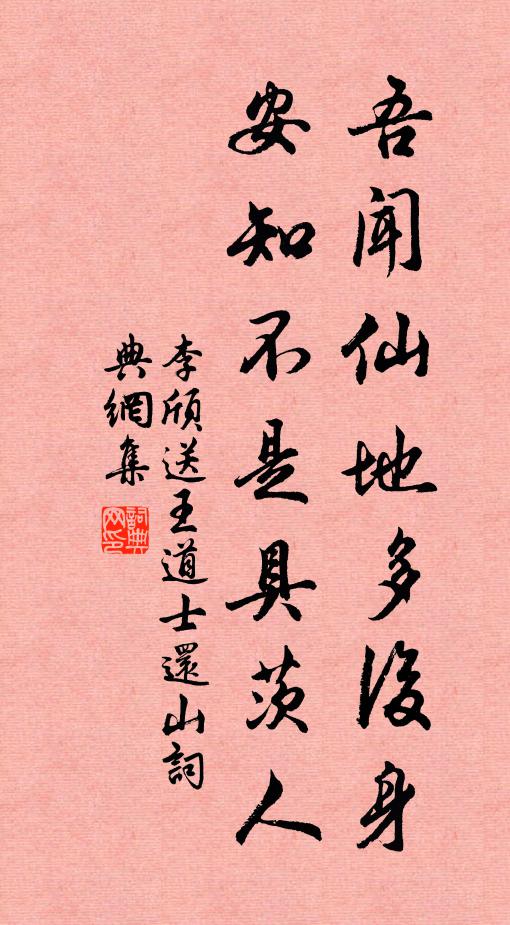 吾闻仙地多後身
安知不是具茨人
李颀送王道士還山詞
典網集
詞典網印